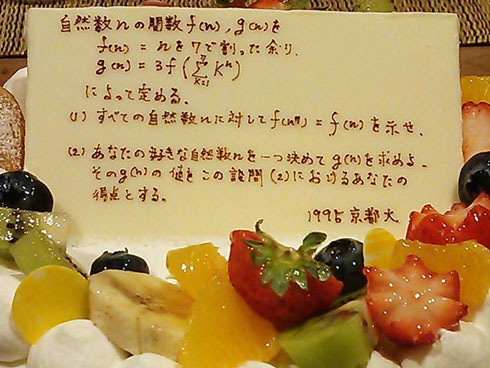 自然数nの関数f(n), g(n)を
f(n) = nを7で割った余り.
g(n) = 3f(∑_{k=1}^{7} k^n)
によって定める.
(1) すべての自然数nに対してf(n^7) = f(n)を示せ.
(2) あなたの好きな自然数nを一つ決めてg(n)を求めよ.
そのg(n)の値をこの設問(2)におけるあなたの
得点とする。
1995 京都大